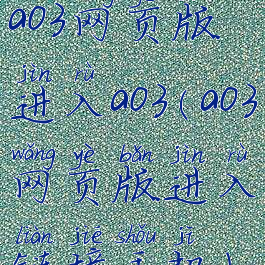 a03网页版
jìn rù
进入a03(a03
wǎng yè bǎn jìn rù
网页版进入
liàn jiē shǒu jī
链接手机)